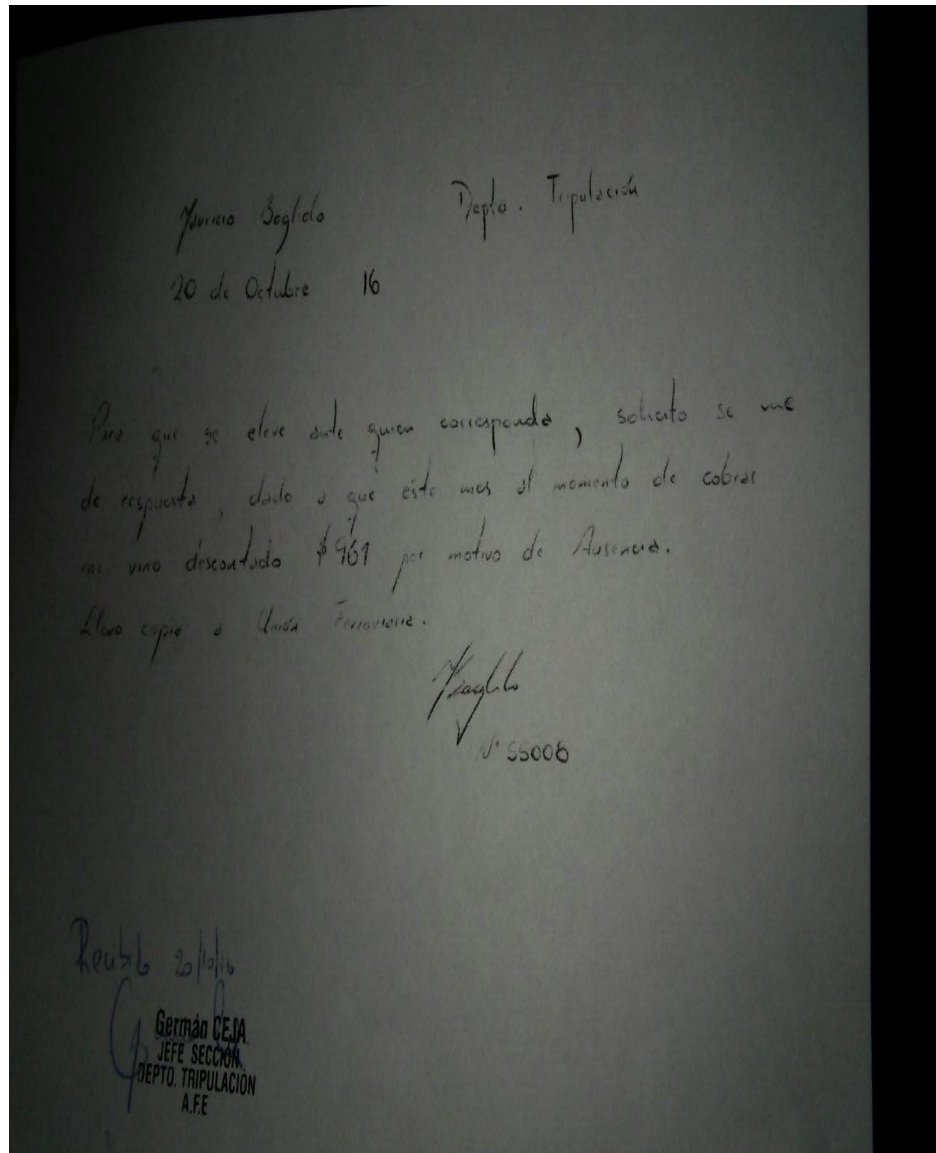 Mauricio Boglido Depto. Tripulación
20 de Octubre 16
Para que se eleve ante quien corresponda, solicito se me
de respuesta, dado a que éste mes al momento de cobrar
me vino descontado $961 por motivo de Ausencia.
Llevo copia a Unión Ferroviaria.
N° 55006
Recibido 20/10/16
Germán CEJA
JEFE SECCIÓN
DEPTO. TRIPULACION
A.F.E